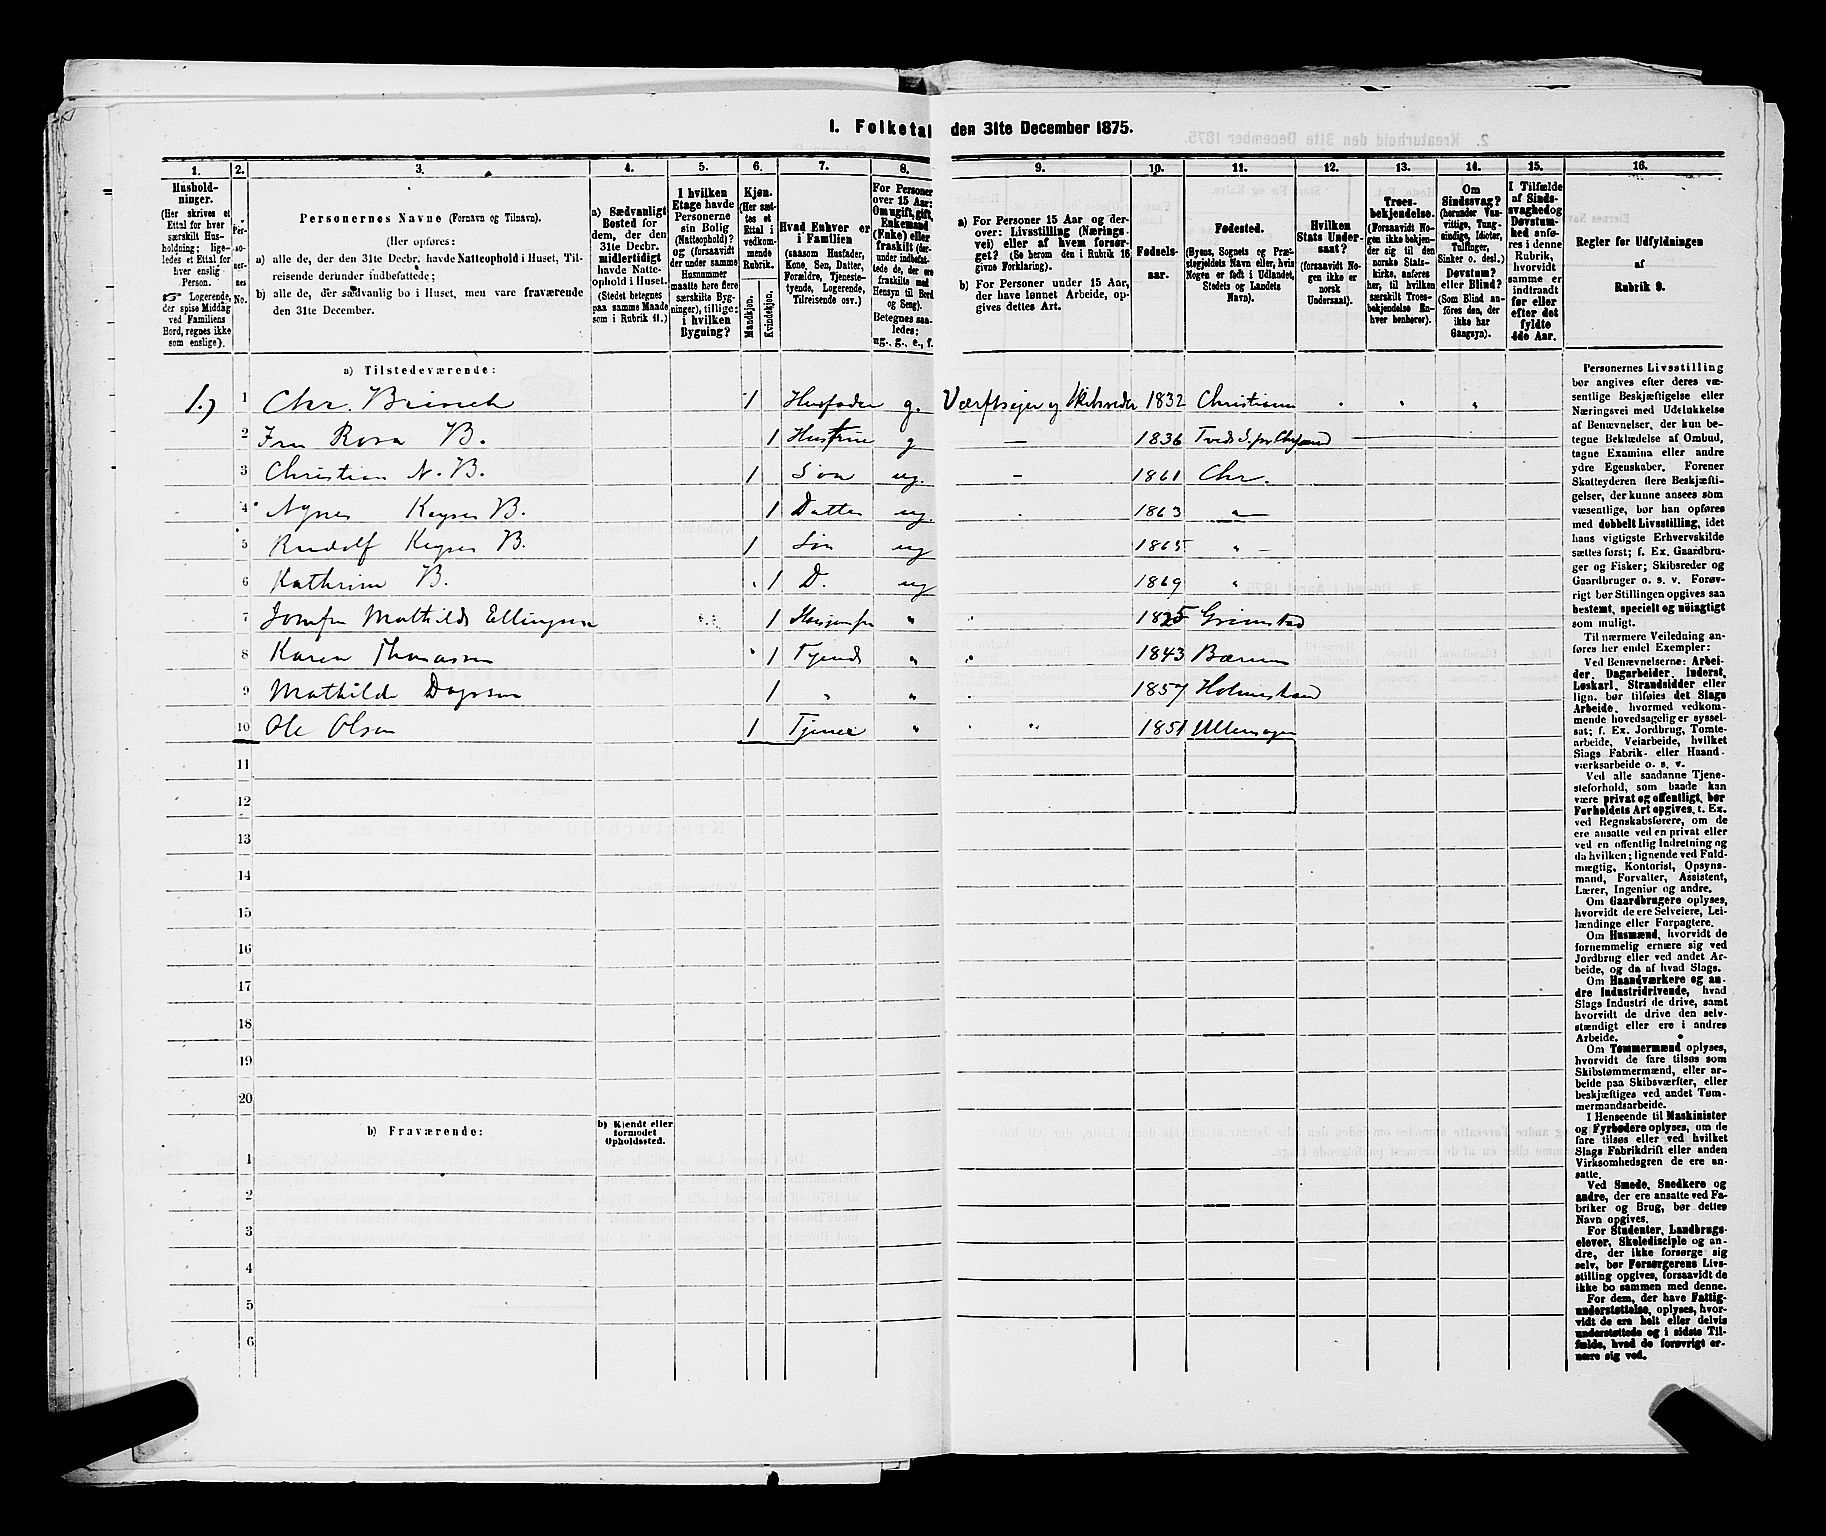 1. Folketal den 31te December 1875.
1. 2. 3. 4. 5. 6. 7. 8. 9. 10. 11. 12. 13. 14. 15. 16.
Hushold-
ninger.
(Her skrives et
Ettal for hver
særskilt Hus-
holdning; lige-
ledes et Ettal for
hver enslig
Person.
☞ Logerende,
der spise Middag
ved Familiens
Bord, regnes ikke
som enslige).
Per-
so-
ner-
nes
No.
Personernes Navne (Fornavn og Tilnavn).
(Her opføres:
a) alle de, der den 31te Decbr. havde Natteophold i Huset, Til-
reisende derunder indbefattede;
b) alle de, der sædvanlig bo i Huset, men vare fraværende
den 31te December.
a) Sædvanligt
Bosted for
dem, der den
31te Decbr.
midlertidigt
havde Natte-
ophold i Huset.
(Stedet betegnes
paa samme Maade
som i Rubrik 11.)
I hvilken
Etage havde
Personerne
sin Bolig
(Natteophold)?
og (forsaavidt
der under samme
Husnummer
maatte høre flere
særskilte Byg-
ninger), tillige:
i hvilken
Bygning?
Kjøn.
(Her sæt-
tes et
Ettal i
vedkom-
mende
Rubrik.
Mandkjøn.
Kvindekjøn.
Hvad Enhver er
i Familien
(saasom Husfader,
Kone, Søn, Datter,
Forældre, Tjeneste-
tyende, Logerende,
Tilreisende osv.)
For Personer
over 15 Aar:
Om ugift, gift,
Enkemand
(Enke) eller
fraskilt (her-
under indbefat-
tede de, der ere
fraskilte med
Hensyn til Bord
og Seng).
Betegnes saa-
ledes:
ug., g., e., f.
a) For Personer 15 Aar og der-
over: Livsstilling (Nærings-
vei) eller af hvem forsør-
get? (Se herom den i Rubrik 16
givne Forklaring).
b) For Personer under 15 Aar,
der have lønnet Arbeide, op-
gives dettes Art.
Fødsels-
aar.
Fødested.
(Byens, Sognets og Præ-
stegjeldets Navn eller, hvis
Nogen er født i Udlandet,
Stedets og Landets
Navn).
Hvilken
Stats Under-
saat?
(forsaavidt No-
gen ikke er
norsk
Undersaat).
Troes-
bekjendelse.
(Forsaavidt No-
gen ikke bekjen-
der sig til den
norske Stats-
kirke, anføres
her, til hvilken
særskilt Troes-
bekjendelse En-
hver henhører).
Om
Sindssvag?
(herunder Van-
vittige, Tung-
sindige, Idioter,
Tullinger,
Sinker o. desl.)
Døvstum?
eller Blind?
(Som Blind an-
føres den, der
ikke har
Gangsyn).
I Tilfælde
af Sinds-
svaghed og
Døvstum-
hed anfø-
res i denne
Rubrik,
hvorvidt
samme er
indtraadt
før eller
efter det
fyldte
4de Aar.
Regler for Udfyldningen
af
Rubrik 9.
a) Tilstedeværende:
1.) 1 Chr. Brinch 1 Husfader g. Værftseier og Skibsreder 1832 Christiania
2 Fru Rosa B. 1 Hustrue g — 1836 Tveds S. pr Chrsand
3 Christian N. B. 1 Søn ug. — 1861 Chr.
4 Agnes Keyser B. 1 Datter ug. 1863 "
5 Rudolf Keyser B. 1 Søn ug 1865 "
6 Kathrine B. 1 D. ug 1869 "
7 Jomfru Mathilde Ellingsen 1 Husjomfru " 1825 Grimstad
8 Karen Thomassen 1 Tjende " 1843 Bærum
9 Mathilde 1 " " 1857 Holmestrand
10 Ole Olsen 1 Tjener " " 1851 Ullensager
11
12
13
14
15
16
17
18
19
20
b) Fraværende:
b) Kjendt eller
formodet
Opholdssted.
1
2
3
4
5
6
Personernes Livsstilling
bør angives efter deres væ-
sentlige Beskjæftigelse eller
Næringsvei med Udelukkelse
af Benævnelser, der kun be-
tegne Beklædelse af Ombud,
tagne Examina eller andre
ydre Egenskaber. Forener
Skatteyderen flere Beskjæfti-
gelser, der kunne ansees som
væsentlige, bør han opføres
med dobbelt Livsstilling, idet
hans vigtigste Erhvervskilde
sættes først; f. Ex. Gaardbru-
ger og Fisker; Skibsreder og
Gaardbruger o. s. v. Forøv-
rigt bør Stillingen opgives saa
bestemt, specielt og nøiagtigt
som muligt.
Til nærmere Veiledning an-
føres her endel Exempler:
Ved Benævnelserne: Arbei-
der, Dagarbeider, Inderst,
Løskarl, Strandsidder eller
lign. bør tilføies det Slags
Arbeide, hvormed vedkom-
mende hovedsagelig er syssel-
sat; f. Ex. Jordbrug, Tomte-
arbeide, Veiarbeide, hvilket
Slags Fabrik- eller Haand-
værksarbeide o. s. v.
Ved alle saadanne Tjene-
steforhold, som baade kan
være privat og offentligt, bør
Forholdets Art opgives, t. Ex.
ved Regnskabsførere, om de
ere ansatte ved en privat eller
ved en offentlig Indretning og
da hvilken; lignende ved Fuld-
mægtig, Kontorist, Opsyns-
mand, Forvalter, Assistent,
Lærer, Ingeniør og andre.
Om Gaardbrugere oplyses,
hvorvidt de ere Selveiere, Lei-
lændinge eller Forpagtere.
Om Husmænd, hvorvidt de
fornemmelig ernære sig ved
Jordbrug eller ved andet Ar-
beide, og da af hvad Slags.
Om Haandværkere og an-
dre Industridrivende, hvad
Slags Industri de drive, samt
hvorvidt de drive den selv-
stændigt eller ere i andres
Arbeide.
Om Tømmermænd oplyses,
hvorvidt de fare tilsøs som
Skibstømmermænd, eller ar-
beide paa Skibsværfter, eller
beskjæftiges ved andet Tøm-
mermandsarbeide.
I Henseende til Maskinister
og Fyrbødere oplyses, om de
fare tilsøs eller ved hvilket
Slags Fabrikdrift eller anden
Virksomhedsgren de ere an-
satte.
Ved Smede, Snedkere og
andre, der ere ansatte ved Fa-
briker og Brug, bør dettes
Navn opgives.
For Studenter, Landbrugs-
elever, Skoledisciple og an-
dre, der ikke forsørge sig
selv, bør Forsørgerens Livs-
stilling opgives, forsaavidt de
ikke bo sammen med denne.
For dem, der have Fattig-
understøttelse, oplyses, hvor-
vidt de ere helt eller delvis
understøttede og i sidste Til-
fælde, hvad de forøvrigt er-
nære sig ved.